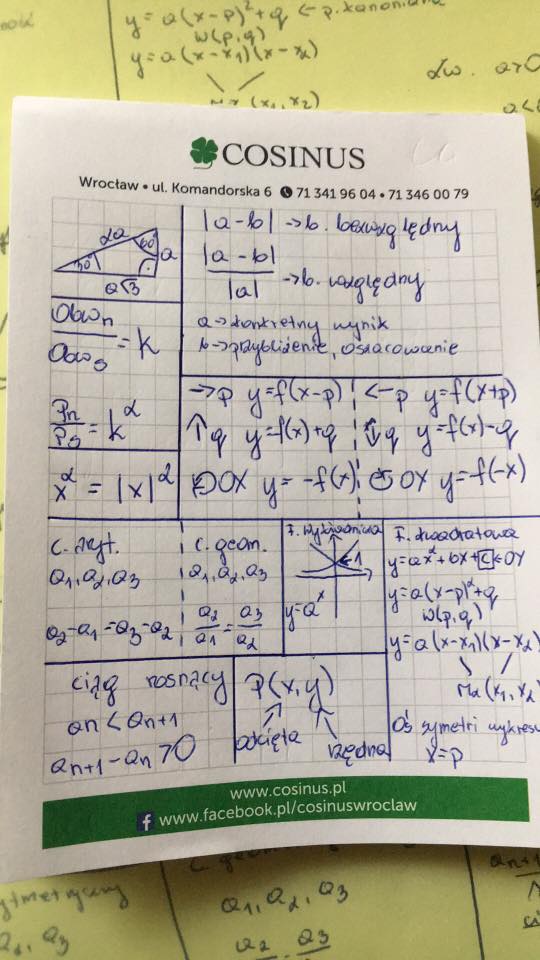 y = a(x-p)² + q ← p. kanoniczna
W(p,q)
y = a(x-x₁)(x-x₂)
(x₁, x₂)
a>0
COSINUS
Wrocław • ul. Komandorska 6 71 341 96 04 • 71 346 00 79
2a 60° a
30°
a√3
|a-b| → b. bezwzględny
|a-b|/|a| → b. względny
a → konkretny wynik
b → przybliżenie, oszacowanie
Obwn/Obws = k
Pn/Ps = k²
x² = |x|²
→ p y = f(x-p)
↑ q y = f(x)+q
OX y = -f(x)
← p y = f(x+p)
↓ q y = f(x)-q
OY y = f(-x)
c. aryt.
a₁, a₂, a₃
a₂-a₁ = a₃-a₂
c. geom.
a₁, a₂, a₃
a₂/a₁ = a₃/a₂
f. wykładnicza
1
y = aˣ
F. kwadratowa
y = ax² + bx + c ← OY
y = a(x-p)² + q
W(p,q)
y = a(x-x₁)(x-x₂)
Mz (x₁, x₂
Oś symetri wykresu
x = p
ciąg rosnący
an < an+1
an+1 - an > 0
P(x, y)
odcięta
rzędna
www.cosinus.pl
www.facebook.pl/cosinuswroclaw
a₁, a₂, a₃
a₂ a₃
an+1